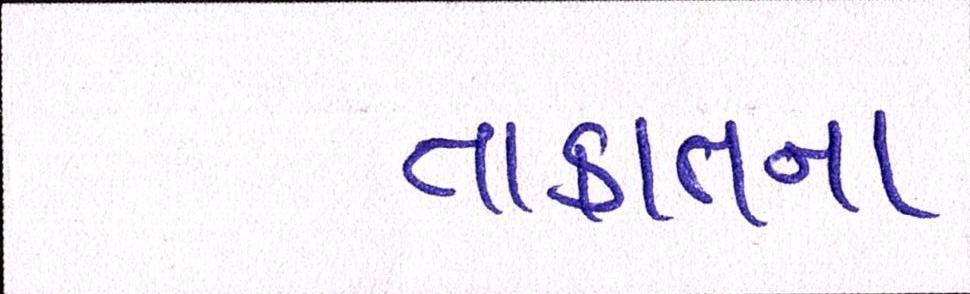 તાકાતના